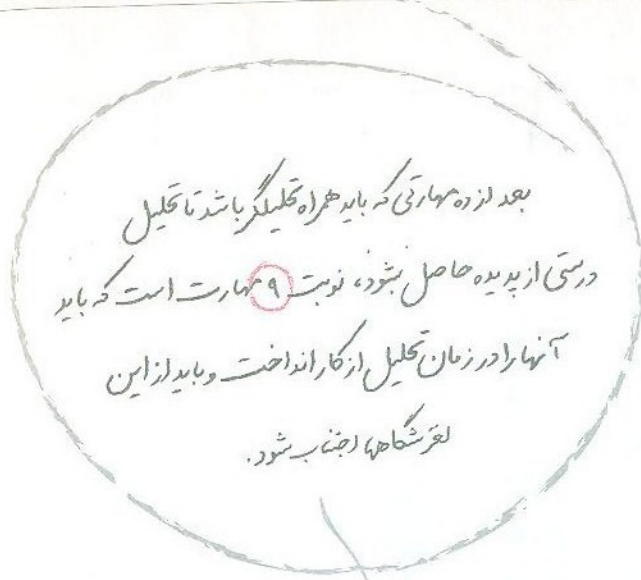 بعد از ده مهارتی که باید همراه تحلیلگر باشد تا تحلیل
درستی از پدیده حاصل بشود، نوبت ۹ مهارت است که باید
آنها را در زمان تحلیل از کار انداخت و باید از این
لغزشگاهها اجتناب شود.